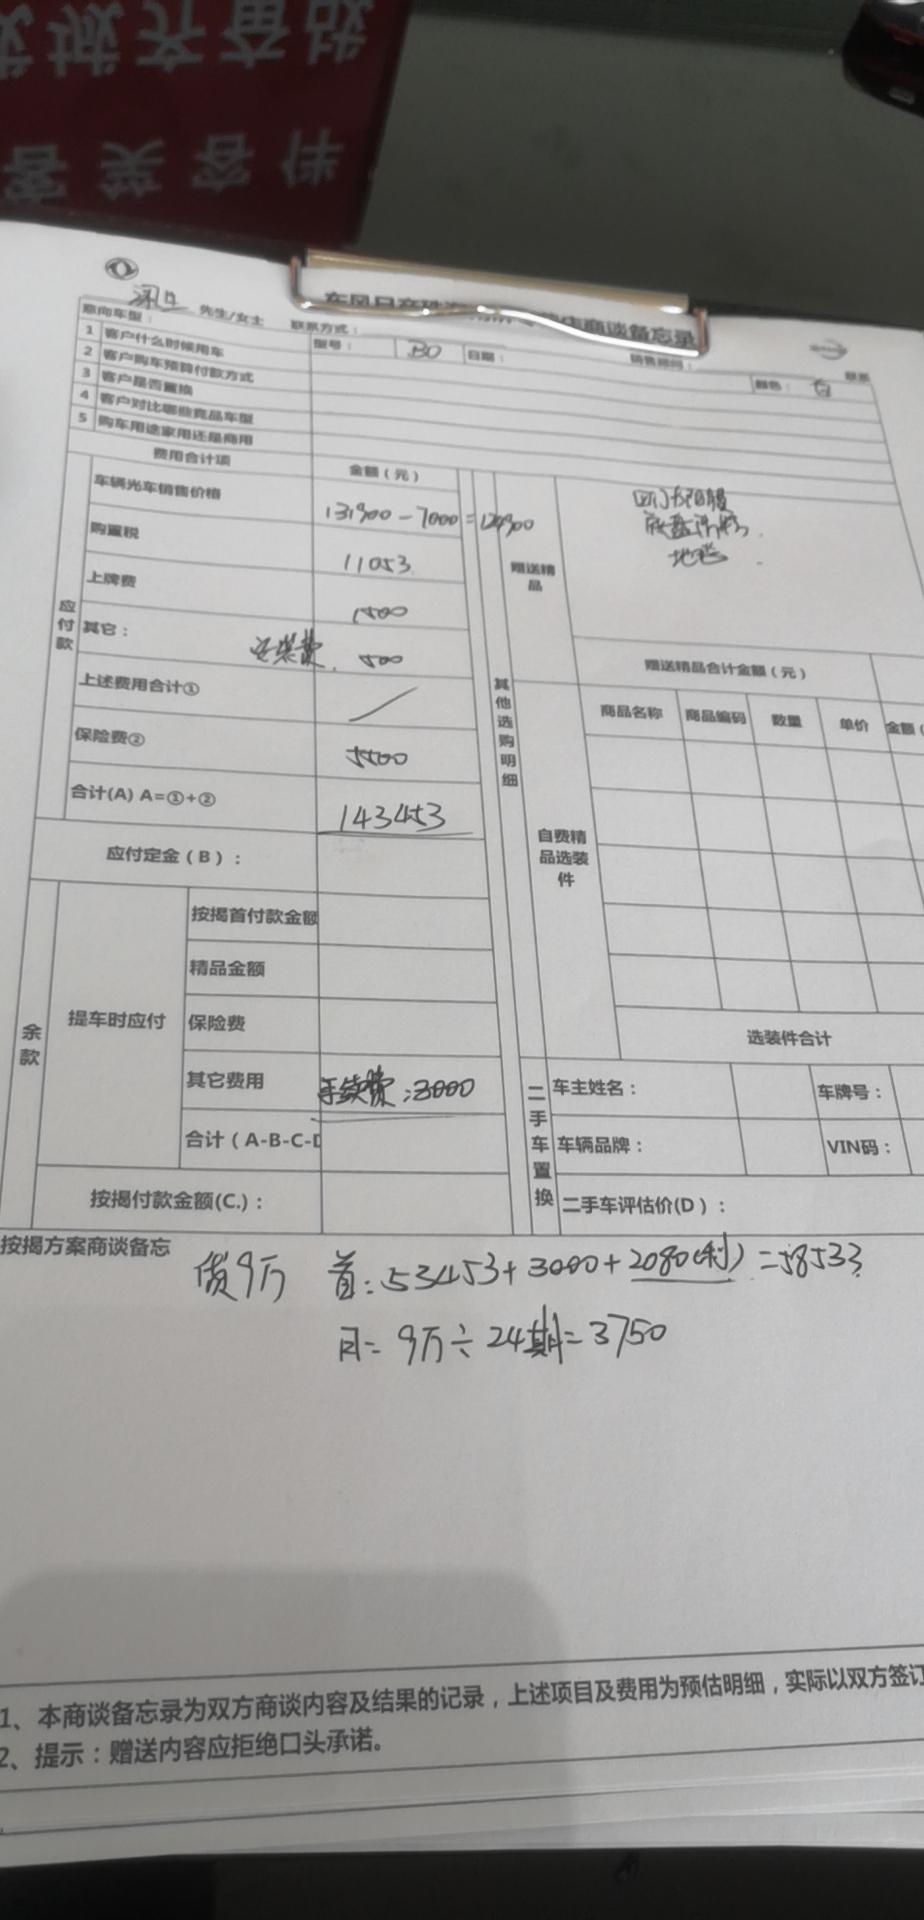 客笑客伴
先生/女士
联系方式：
意向车型：
型号：
BO
日期：
颜色：
白
1 客户什么时候用车
2 客户购车预算付款方式
3 客户是否置换
4 客户对比哪些竞品车型
5 购车用途家用还是商用
费用合计项
金额（元）
应付款
车辆光车销售价格
131900-7000=124900
购置税
11053
上牌费
1500
其它：
安装费. 500
上述费用合计①
保险费②
5500
合计(A) A=①+②
143453
应付定金（B）：
余款
提车时应付
按揭首付款金额
精品金额
保险费
其它费用
手续费：3000
合计（A-B-C-D
按揭付款金额(C.)：
其他选购明细
赠送精品
地毯
赠送精品合计金额（元）
自费精品选装件
商品名称
商品编码
数量
单价
金额（
选装件合计
二手车置换
车主姓名：
车牌号：
车辆品牌：
VIN码：
二手车评估价(D)：
按揭方案商谈备忘
贷9万 首：53453+3000+2080(利)=58533
月=9万÷24期=3750
1、本商谈备忘录为双方商谈内容及结果的记录，上述项目及费用为预估明细，实际以双方签订
2、提示：赠送内容应拒绝口头承诺。